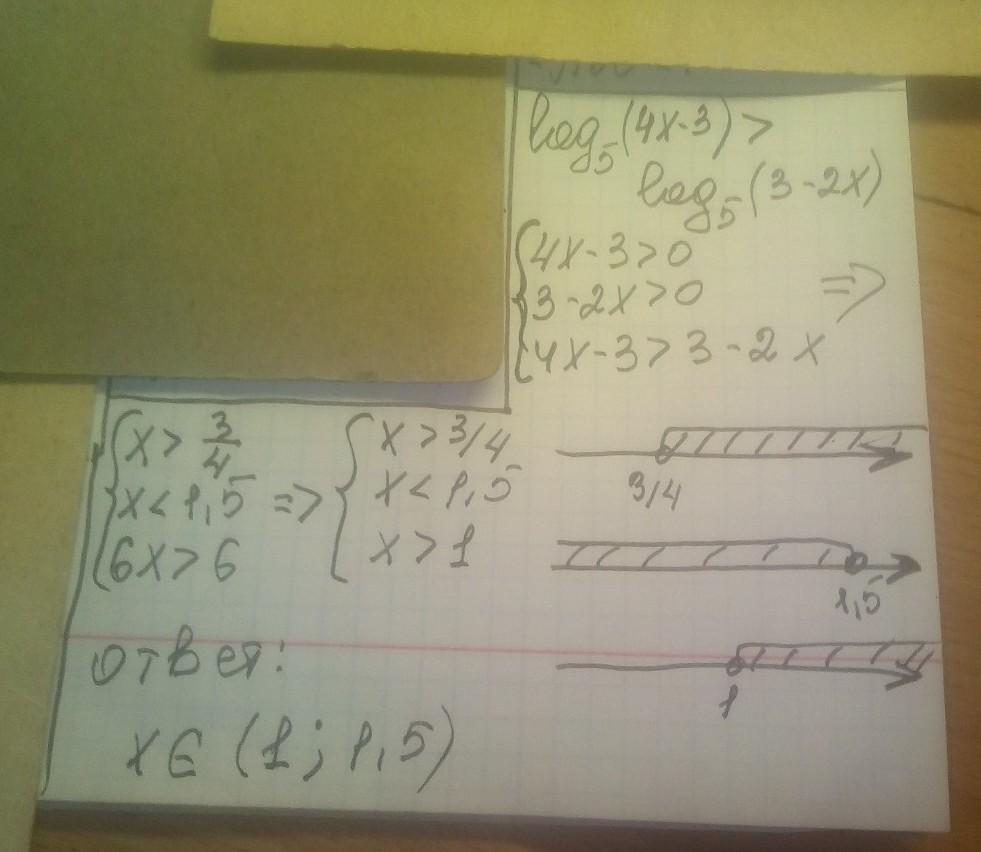 log₅(4x-3) >
log₅(3-2x)
{4x-3>0
3-2x>0 =>
4x-3>3-2x
{x > 3/4
x < 1,5 =>
6x > 6
{x > 3/4
x < 1,5
x > 1
3/4
1,5
1
ответ:
x ∈ (1; 1,5)